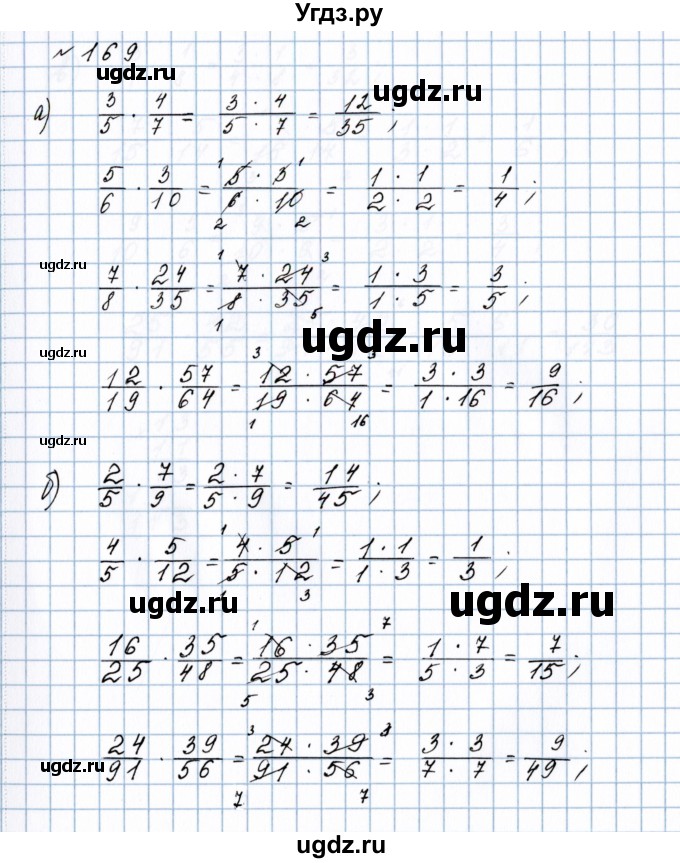 Угдз.ру
№ 169
ugdz.ru
ugdz.ru
а) 3/5 · 4/7 = 3 · 4 / 5 · 7 = 12/35 ;
5/6 · 3/10 = 5 · 3 / 6 · 10 = 1 · 1 / 2 · 2 = 1/4 ;
ugdz.ru
7/8 · 24/35 = 7 · 24 / 8 · 35 = 1 · 3 / 1 · 5 = 3/5 ;
ugdz.ru
ugdz.ru
12/19 · 57/64 = 12 · 57 / 19 · 64 = 3 · 3 / 1 · 16 = 9/16 ;
б) 2/5 · 7/9 = 2 · 7 / 5 · 9 = 14/45 ;
4/5 · 5/12 = 4 · 5 / 5 · 12 = 1 · 1 / 1 · 3 = 1/3 ;
ugdz.ru
ugdz.ru
16/25 · 35/48 = 16 · 35 / 25 · 48 = 1 · 7 / 5 · 3 = 7/15 ;
24/91 · 39/56 = 24 · 39 / 91 · 56 = 3 · 3 / 7 · 7 = 9/49 ;
ugdz.ru
ugdz.ru